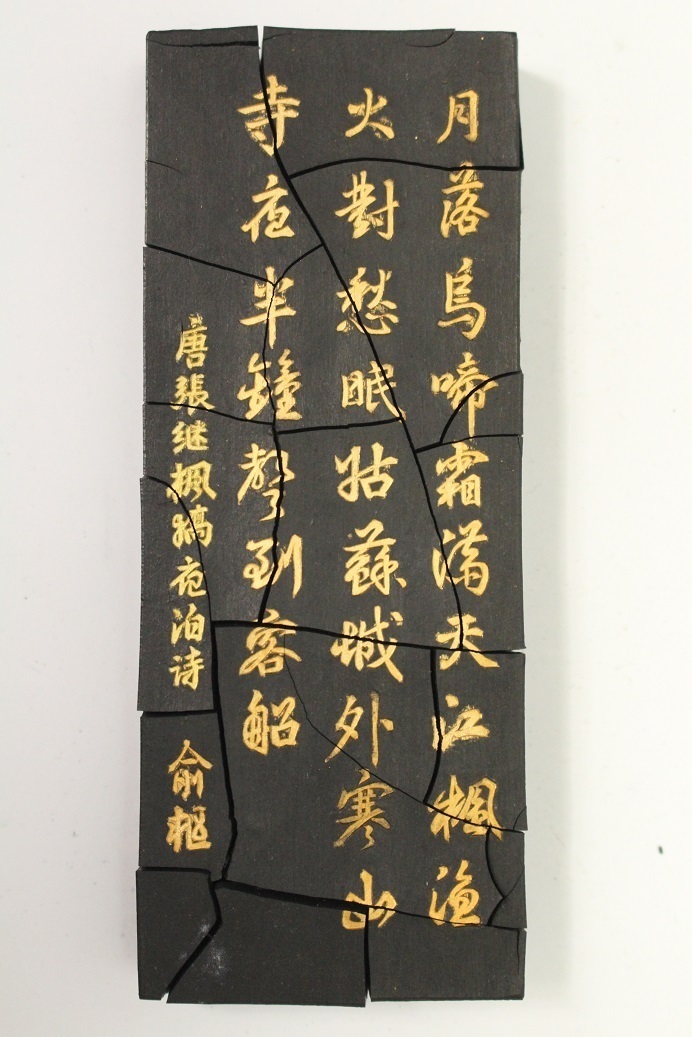 月落烏啼霜滿天江楓渔
火對愁眠姑蘇城外寒山
寺夜半鐘聲到客船
唐張继楓橋夜泊诗
俞樾